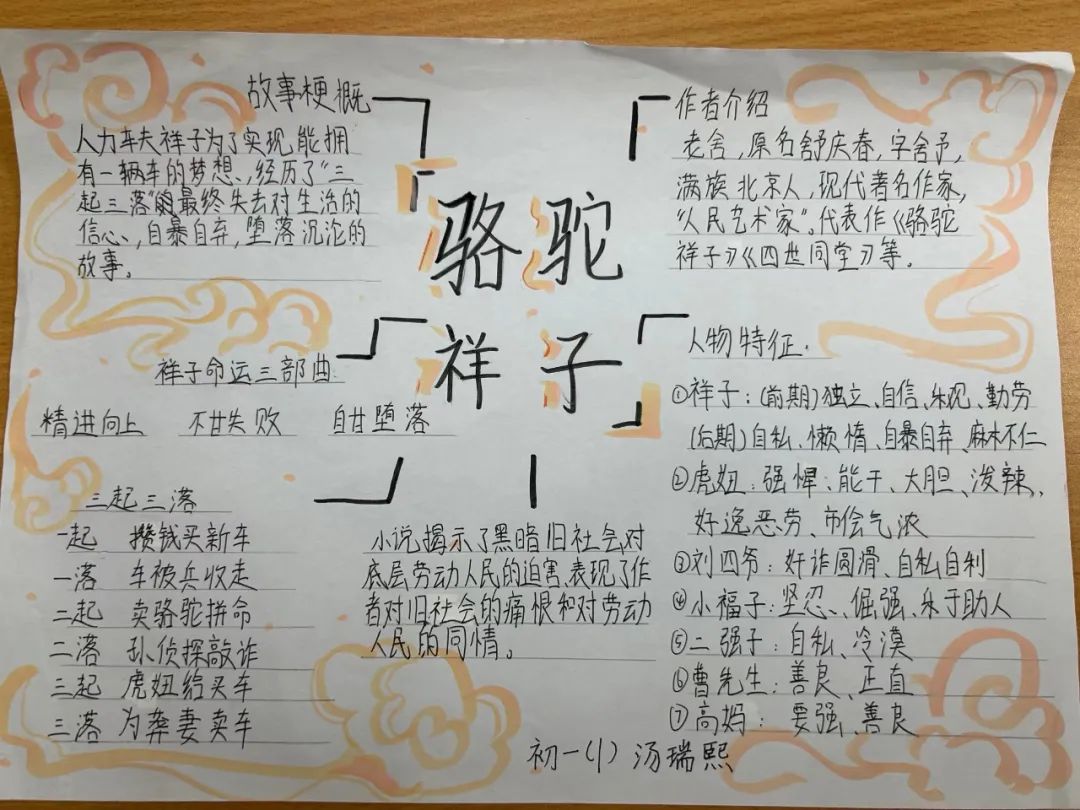 故事梗概
人力车夫祥子为了实现能拥
有一辆车的梦想,经历了“三
起三落”最终失去对生活的
信心,自暴自弃,堕落沉沦的
故事。
骆驼
祥子
作者介绍
老舍,原名舒庆春,字舍予,
满族北京人,现代著名作家,
“人民艺术家”。代表作《骆驼
祥子》《四世同堂》等。
祥子命运三部曲
精进向上 不甘失败 自甘堕落
三起三落
一起 攒钱买新车
一落 车被兵收走
二起 卖骆驼拼命
二落 孙侦探敲诈
三起 虎妞给买车
三落 为葬妻卖车
小说揭示了黑暗旧社会对
底层劳动人民的迫害,表现了作
者对旧社会的痛恨和对劳动
人民的同情。
人物特征.
①祥子:(前期)独立、自信、乐观、勤劳
(后期)自私、懒惰、自暴自弃、麻木不仁
②虎妞:强悍、能干、大胆、泼辣、
好逸恶劳、市侩气浓
③刘四爷:奸诈圆滑、自私自利
④小福子:坚忍、倔强、乐于助人
⑤二强子:自私、冷漠
⑥曹先生:善良、正直
⑦高妈:要强、善良
初一(1) 汤瑞熙